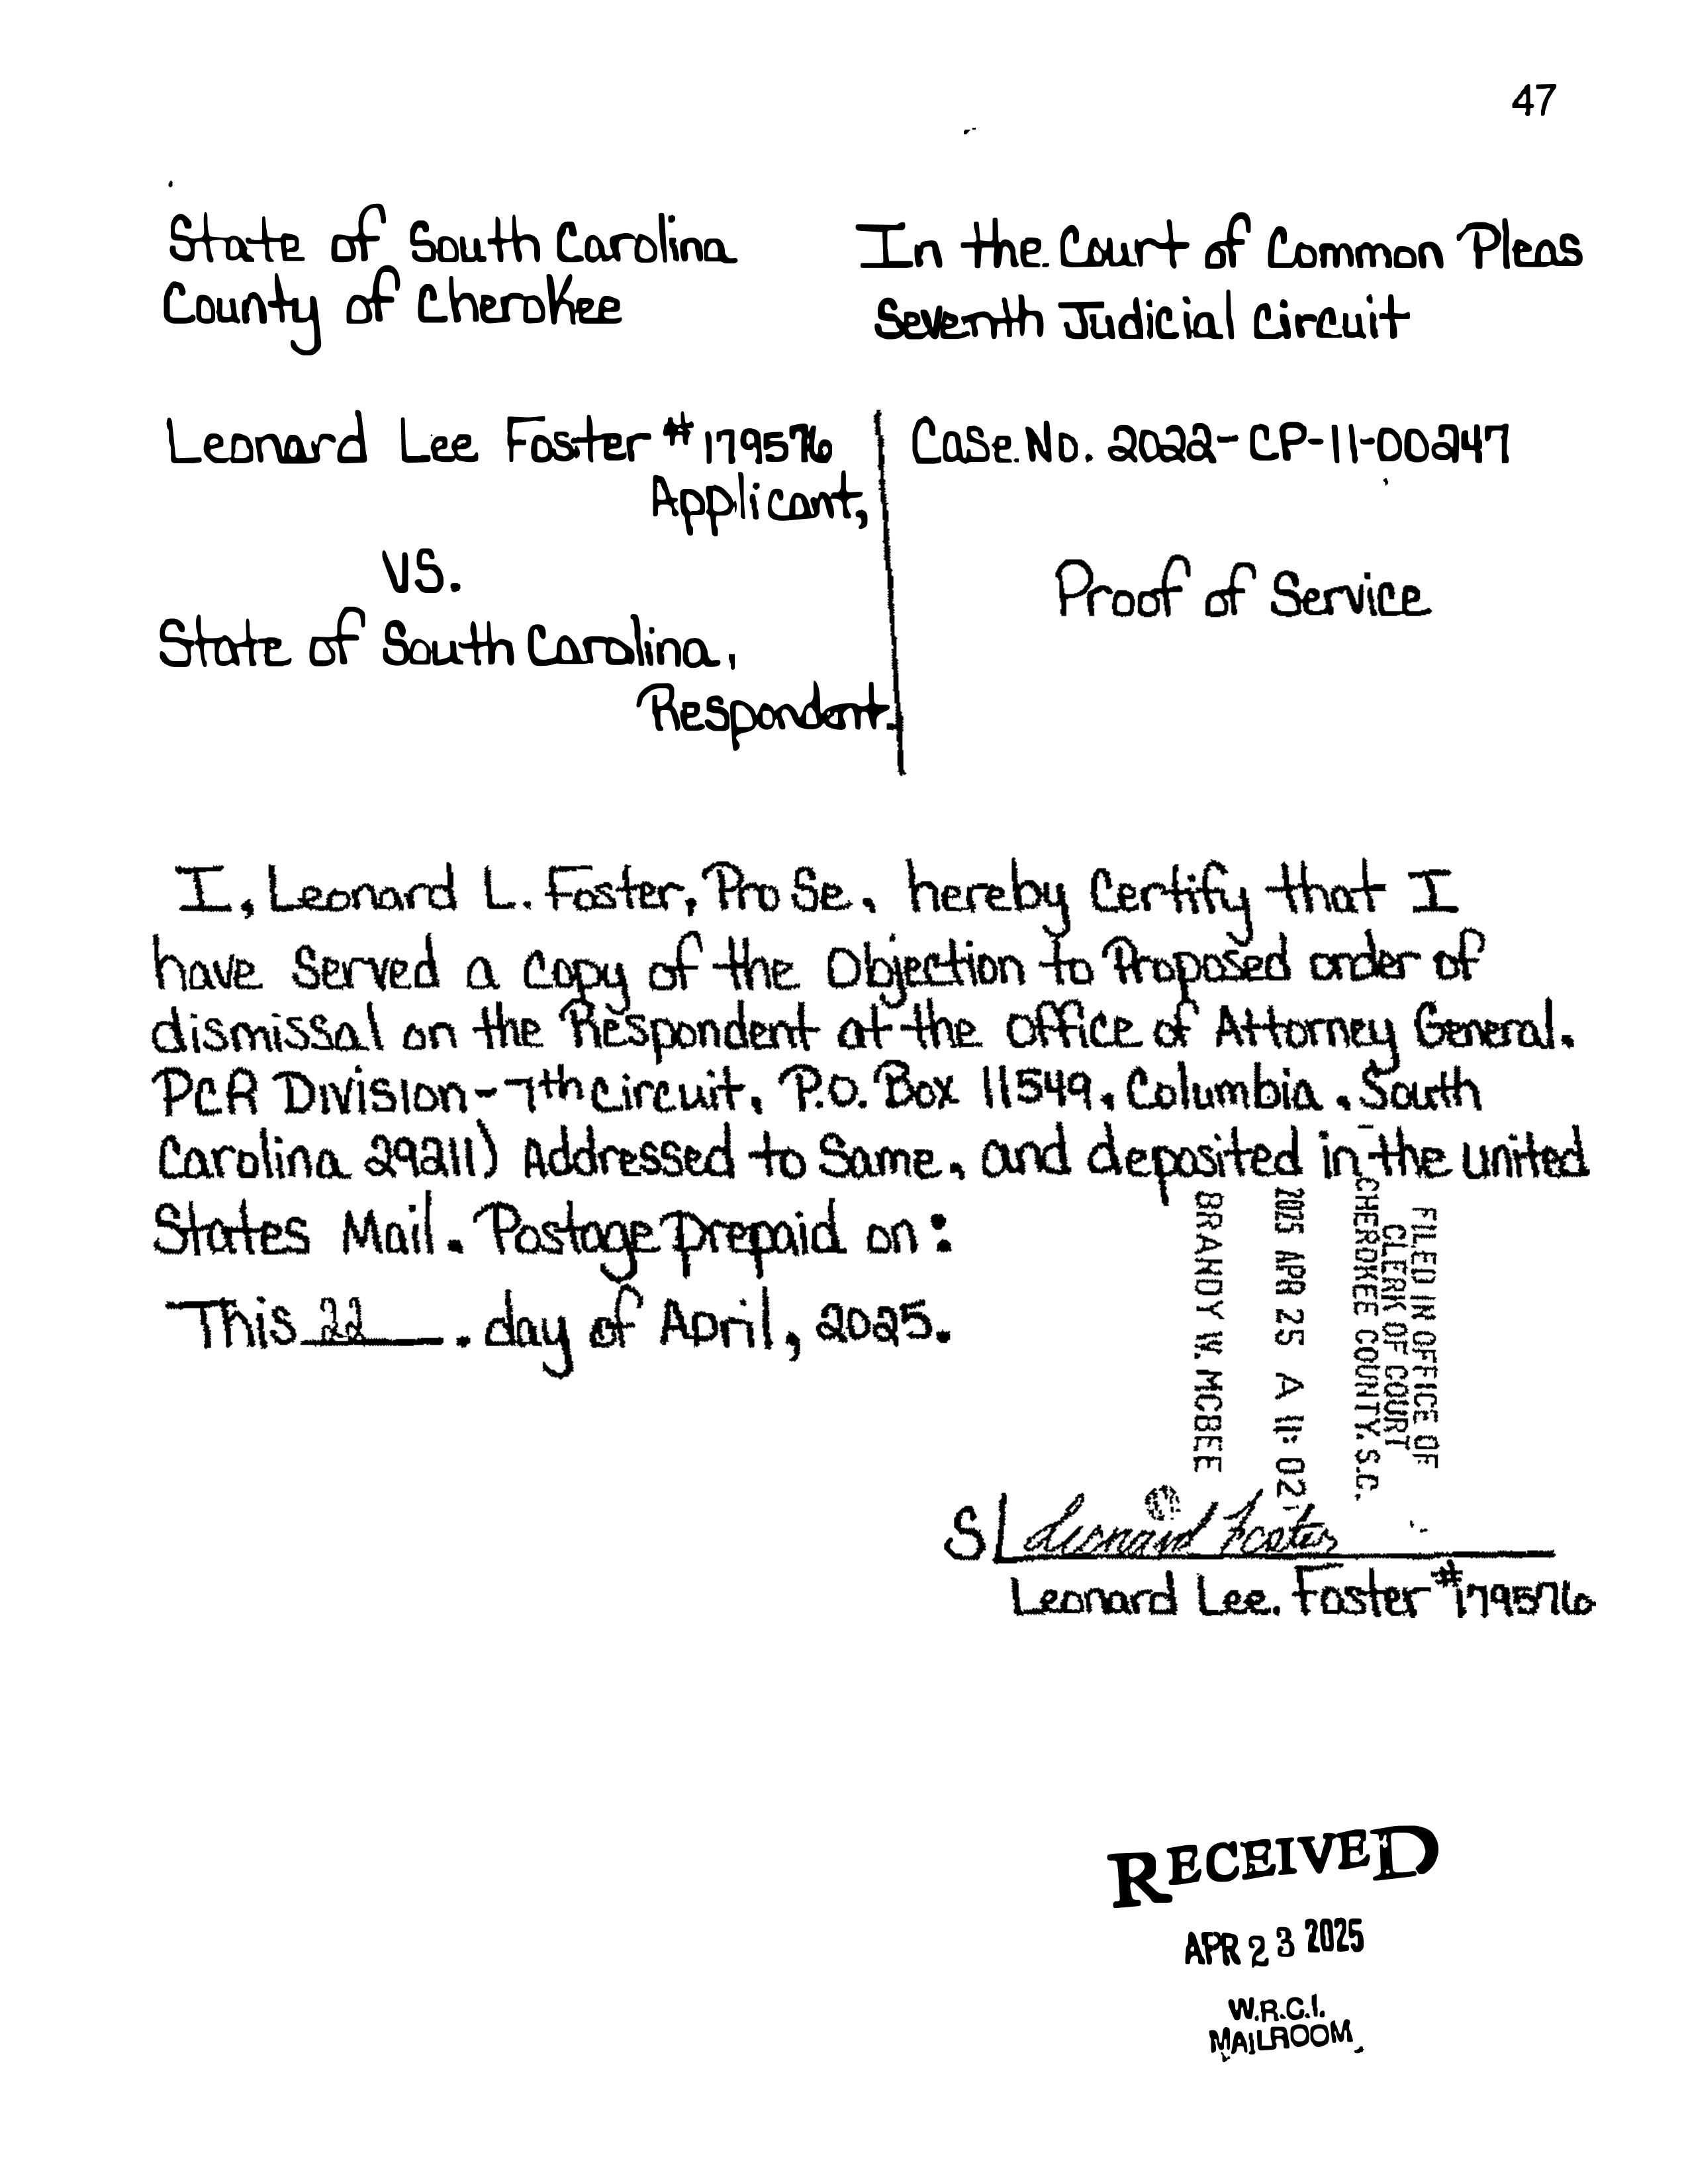 47
State of South Carolina
County of Cherokee
In the Court of Common Pleas
Seventh Judicial Circuit
Leonard Lee Foster #179576
Applicant,
VS.
State of South Carolina,
Respondent.
Case No. 2022-CP-11-00247
Proof of Service
I, Leonard L. Foster, Pro Se, hereby Certify that I
have Served a Copy of the Objection to Proposed order of
dismissal on the Respondent at the Office of Attorney General.
PCR Division-7th Circuit, P.O. Box 11549, Columbia, South
Carolina 29211) Addressed to Same, and deposited in the united
States Mail. Postage Prepaid on:
This 22 . day of April, 2025.
FILED IN OFFICE OF
CLERK OF COURT
CHEROKEE COUNTY, S.C.
2025 APR 25 A 11: 02
BRANDY W. MCBEE
S/ Leonard Foster
Leonard Lee. Foster #179576
RECEIVED
APR 23 2025
W.R.C.I.
MAILROOM